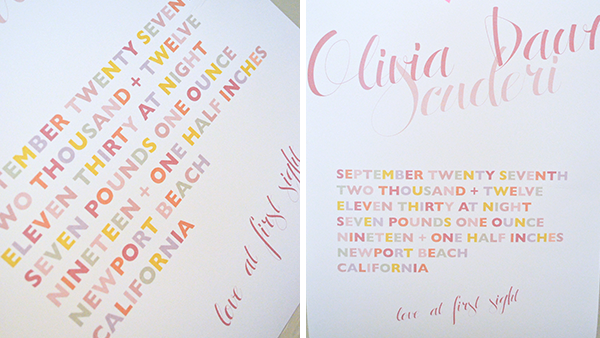 SEPTEMBER TWENTY SEVENTH
TWO THOUSAND + TWELVE
ELEVEN THIRTY AT NIGHT
SEVEN POUNDS ONE OUNCE
NINETEEN + ONE HALF INCHES
NEWPORT BEACH
CALIFORNIA
love at first sight
Olivia Dawn
Scuderi
SEPTEMBER TWENTY SEVENTH
TWO THOUSAND + TWELVE
ELEVEN THIRTY AT NIGHT
SEVEN POUNDS ONE OUNCE
NINETEEN + ONE HALF INCHES
NEWPORT BEACH
CALIFORNIA
love at first sight